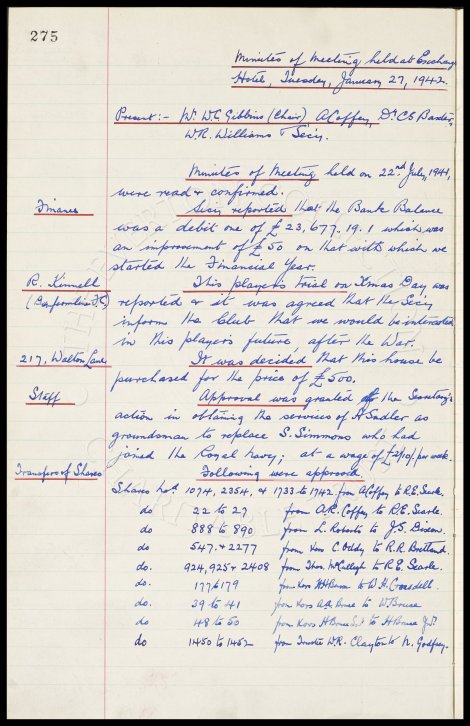 275
Minutes of Meeting held at Exchange
Hotel, Tuesday, January 27, 1942
Present:- Mr W.C. Gibbins (Chair), A Coffey, Dr CS Baxter,
W.R. Williams & Secy.
Minutes of Meeting held on 22nd July, 1941,
were read & confirmed.
Finance
Secy reported that the Bank Balance
was a debit one of £23,677.19.1 which was
an improvement of £50 on that with which we
started the Financial Year.
R. Kinnell
(Dunfermline F.C)
This players trial on Xmas Day was
reported & it was agreed that the Secy
inform the Club that we would be interested
in this players future, after the War.
217, Walton Lane
It was decided that this house be
purchased for the price of £500.
Staff
Approval was granted of the Secretary's
action in obtaining the services of H Sadler as
groundsman to replace S. Simmons who had
joined the Royal Navy; at a wage of per week.
Transfer of Shares
Following were approved
Shares No. 1074, 2354, & 1733 to 1742 from A Coffey to R.E. Searle.
do 22 to 27 from A. Coffey to R.E. Searle.
do 888 to 890 from L. Roberts to J.S. Dixon.
do 547 & 2277 from C. Oddy to R.R.
do. 924, 925 & 2408 from Thos. to R.E. Searle.
do. 177 & 179 from to W H.
do. 39 to 41 from to W
do. 48 to 50 from to H
do 1450 to 1452 from W.R. Clayton to N. Godfrey.